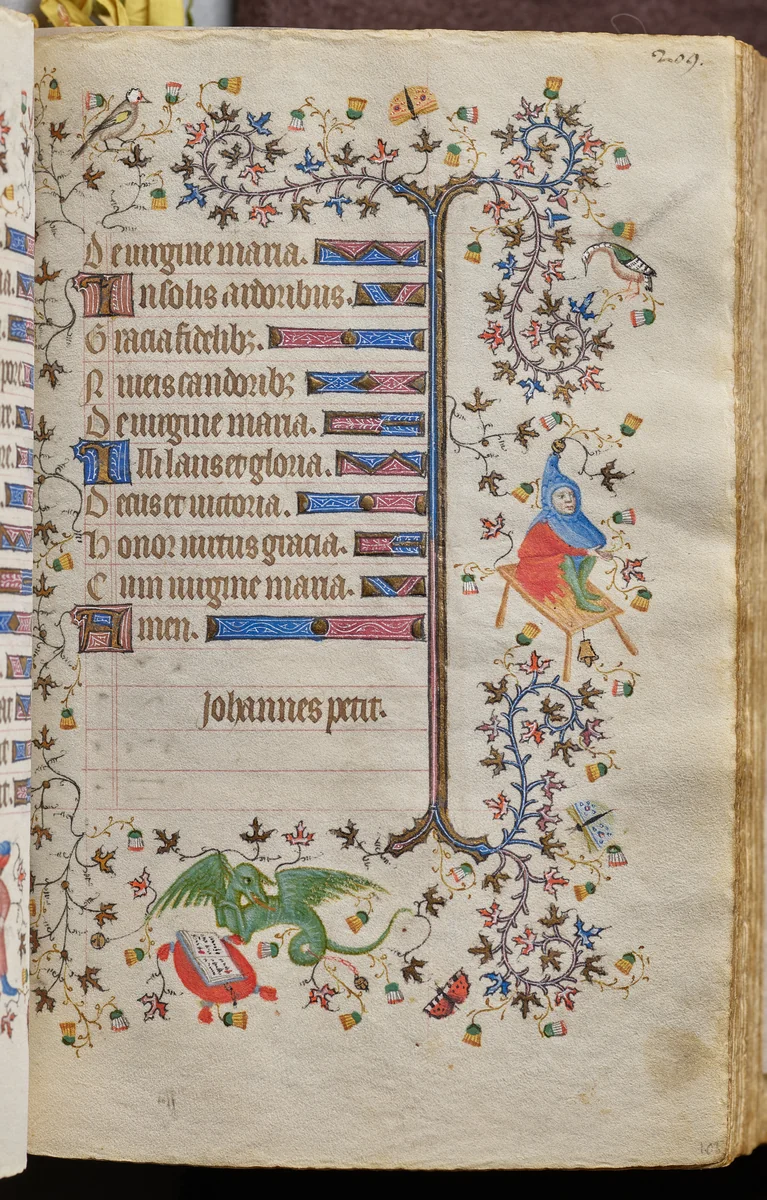 209.
De uirgine maria.
In solis ardoribus.
Gracia fidelibꝫ.
Niueis candoribꝫ
De uirgine maria.
Illi laus et gloria.
Decus et uictoria.
Honor uirtus gracia.
Cum uirgine maria.
Amen.
Johannes petit.